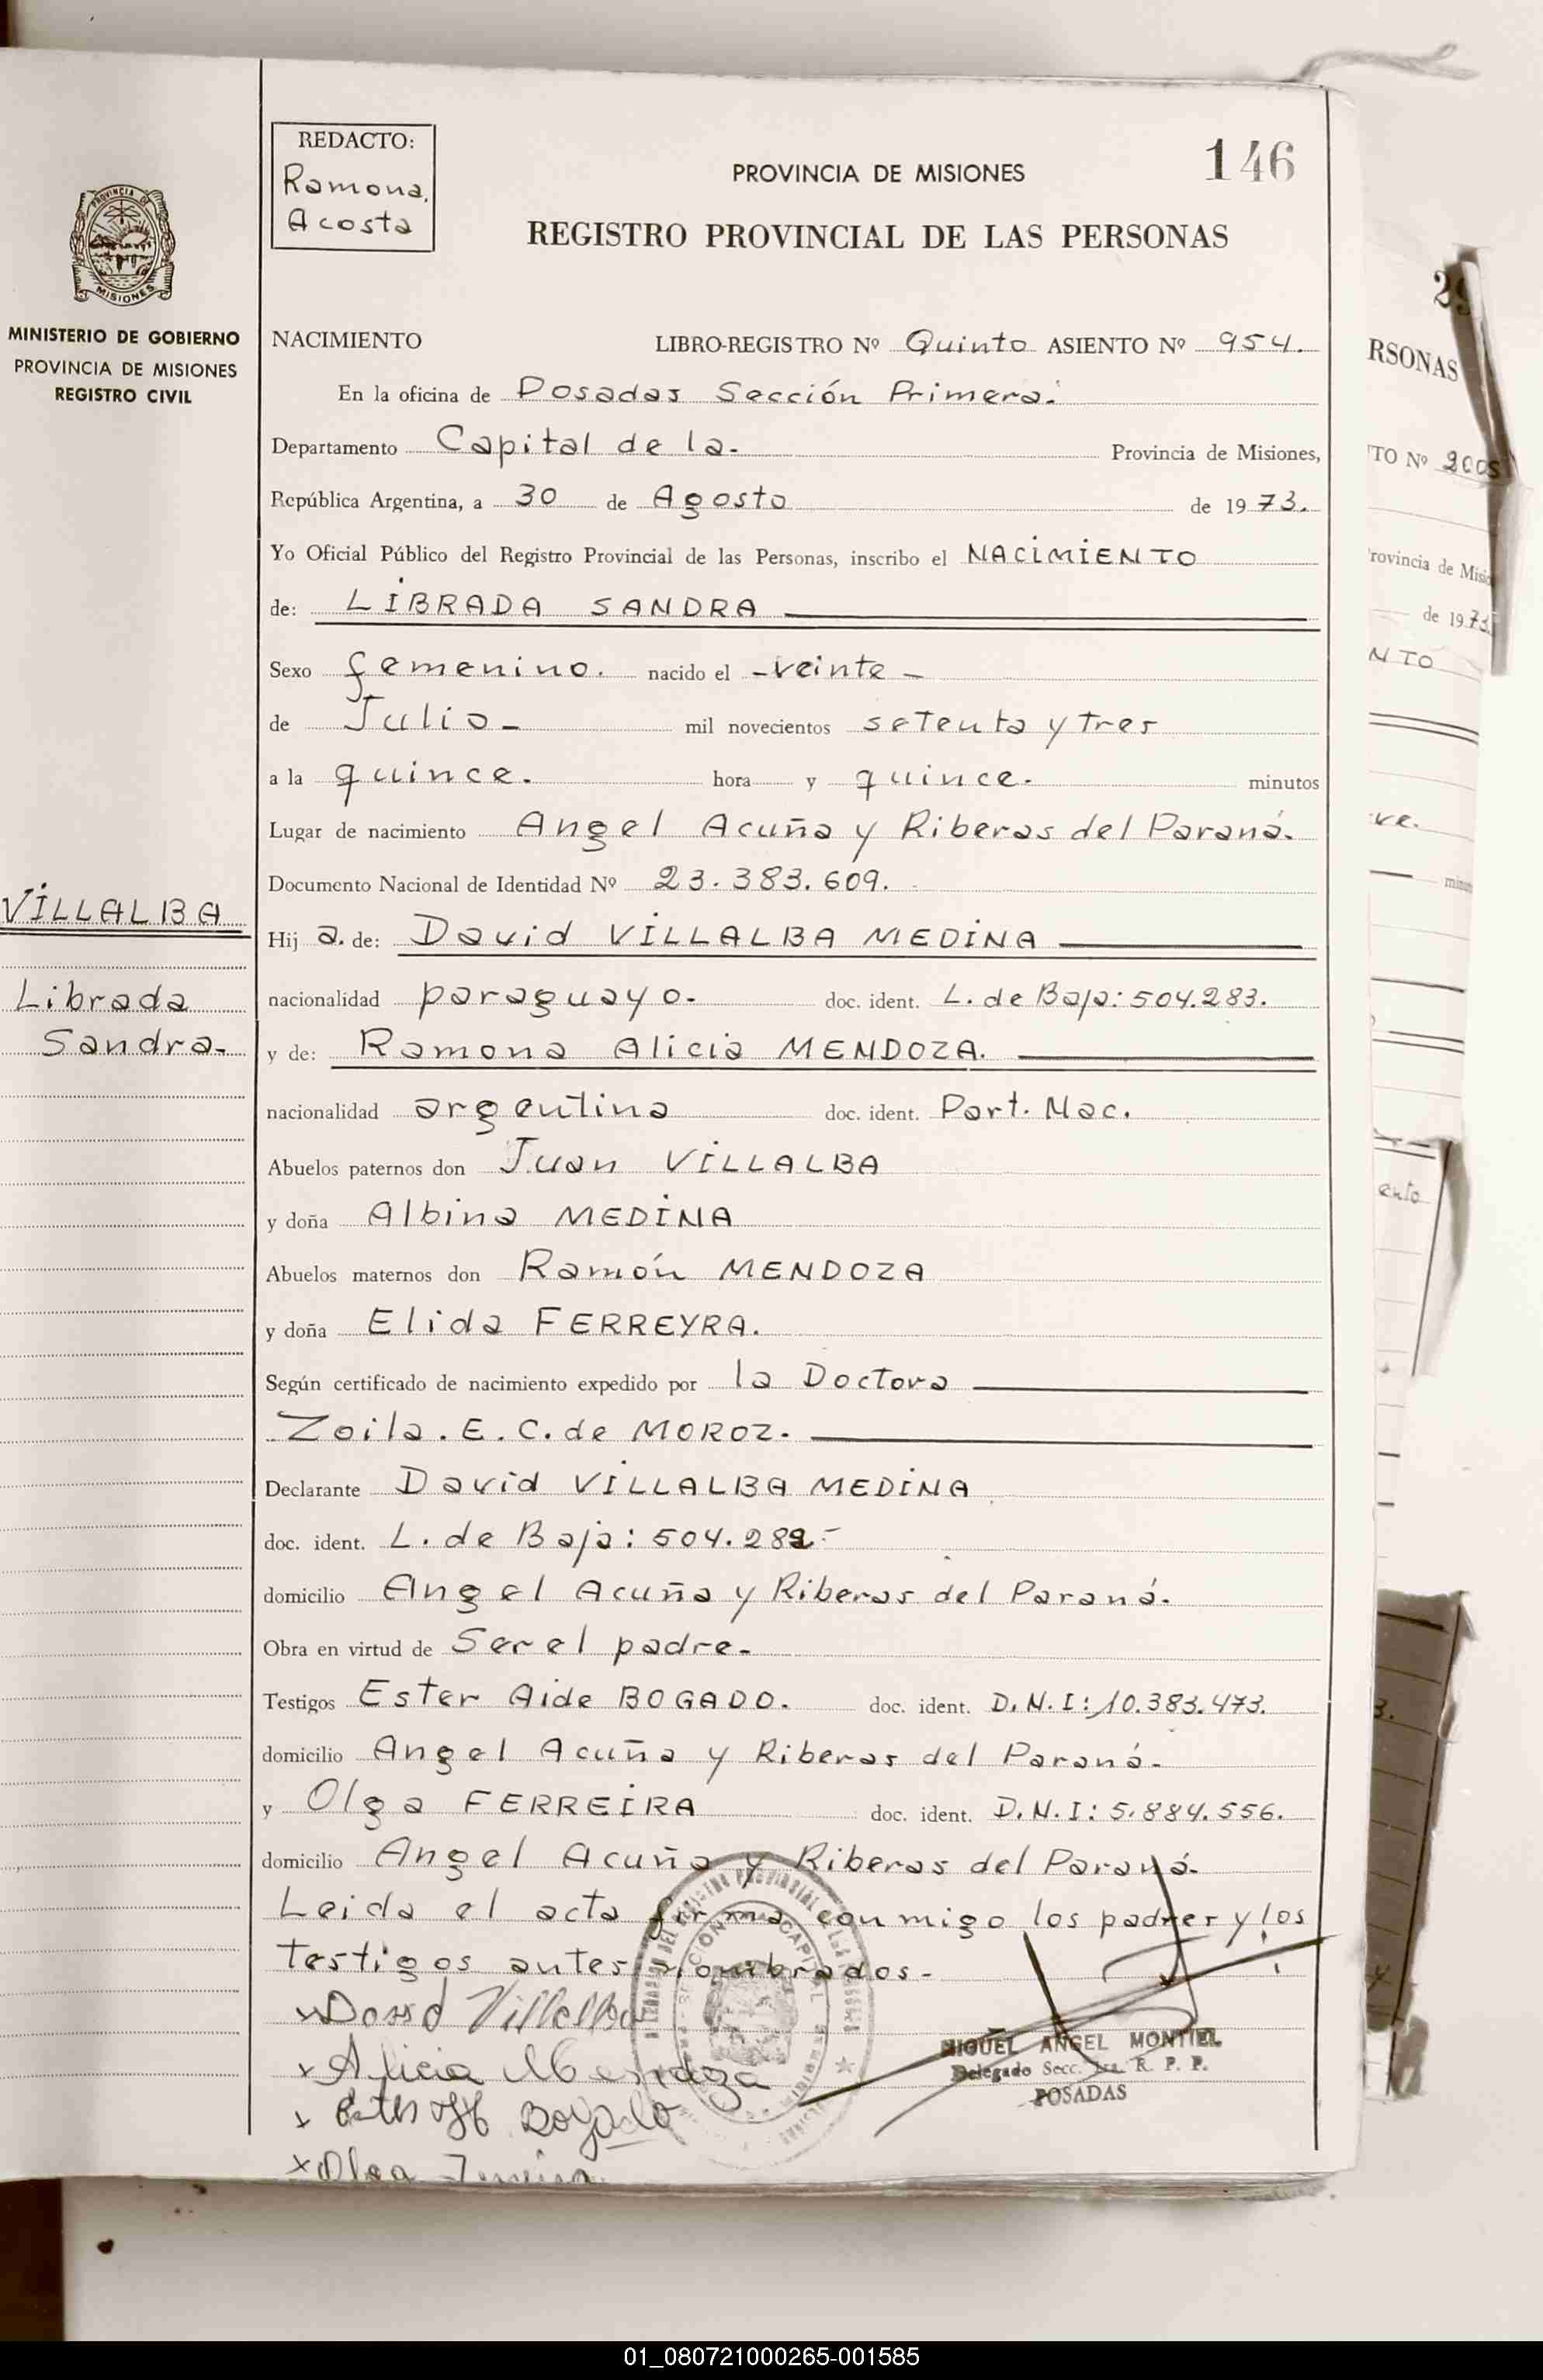 REDACTO:
Ramona
Acosta
146
PROVINCIA DE MISIONES
REGISTRO PROVINCIAL DE LAS PERSONAS
PROVINCIA DE
MISIONES
MINISTERIO DE GOBIERNO
PROVINCIA DE MISIONES
REGISTRO CIVIL
NACIMIENTO LIBRO-REGISTRO Nº Quinto ASIENTO Nº 954.
En la oficina de Posadas Sección Primera.
Departamento Capital de la- Provincia de Misiones,
República Argentina, a 30 de Agosto de 1973.
Yo Oficial Público del Registro Provincial de las Personas, inscribo el NACIMIENTO
de: LIBRADA SANDRA
Sexo femenino. nacido el -veinte-
de Julio- mil novecientos setenta y tres
a la quince. hora y quince. minutos
Lugar de nacimiento Angel Acuña y Riberas del Paraná.
Documento Nacional de Identidad Nº 23.383.609.
VILLALBA
Librada
Sandra-
Hij a. de: David VILLALBA MEDINA
nacionalidad paraguayo- doc. ident. L. de Baja: 504.283.
y de: Ramona Alicia MENDOZA.
nacionalidad argentina doc. ident. Part. Nac.
Abuelos paternos don Juan VILLALBA
y doña Albina MEDINA
Abuelos maternos don Ramón MENDOZA
y doña Elida FERREYRA.
Según certificado de nacimiento expedido por la Doctora
Zoila. E. C. de MOROZ.
Declarante David VILLALBA MEDINA
doc. ident. L. de Baja: 504.
domicilio Angel Acuña y Riberas del Paraná.
Obra en virtud de Ser el padre-
Testigos Ester Aide BOGADO. doc. ident. D.N.I: 10.383.473.
domicilio Angel Acuña y Riberas del Paraná-
y Olga FERREIRA doc. ident. D.N.I: 5.884.556.
domicilio Angel Acuña y Riberas del Paraná-
Leida el acta firma conmigo los padres y los
testigos antes nombrados-
David Villalba
x Alicia Mendoza
Bogado
x Olga
MIGUEL ANGEL MONTIEL
Delegado Secc. 1ra. R. P. P.
POSADAS
RSONAS
TO Nº 2005
rovincia de Misio
de 1973
NTO
ve.
minu
ento
01_080721000265-001585